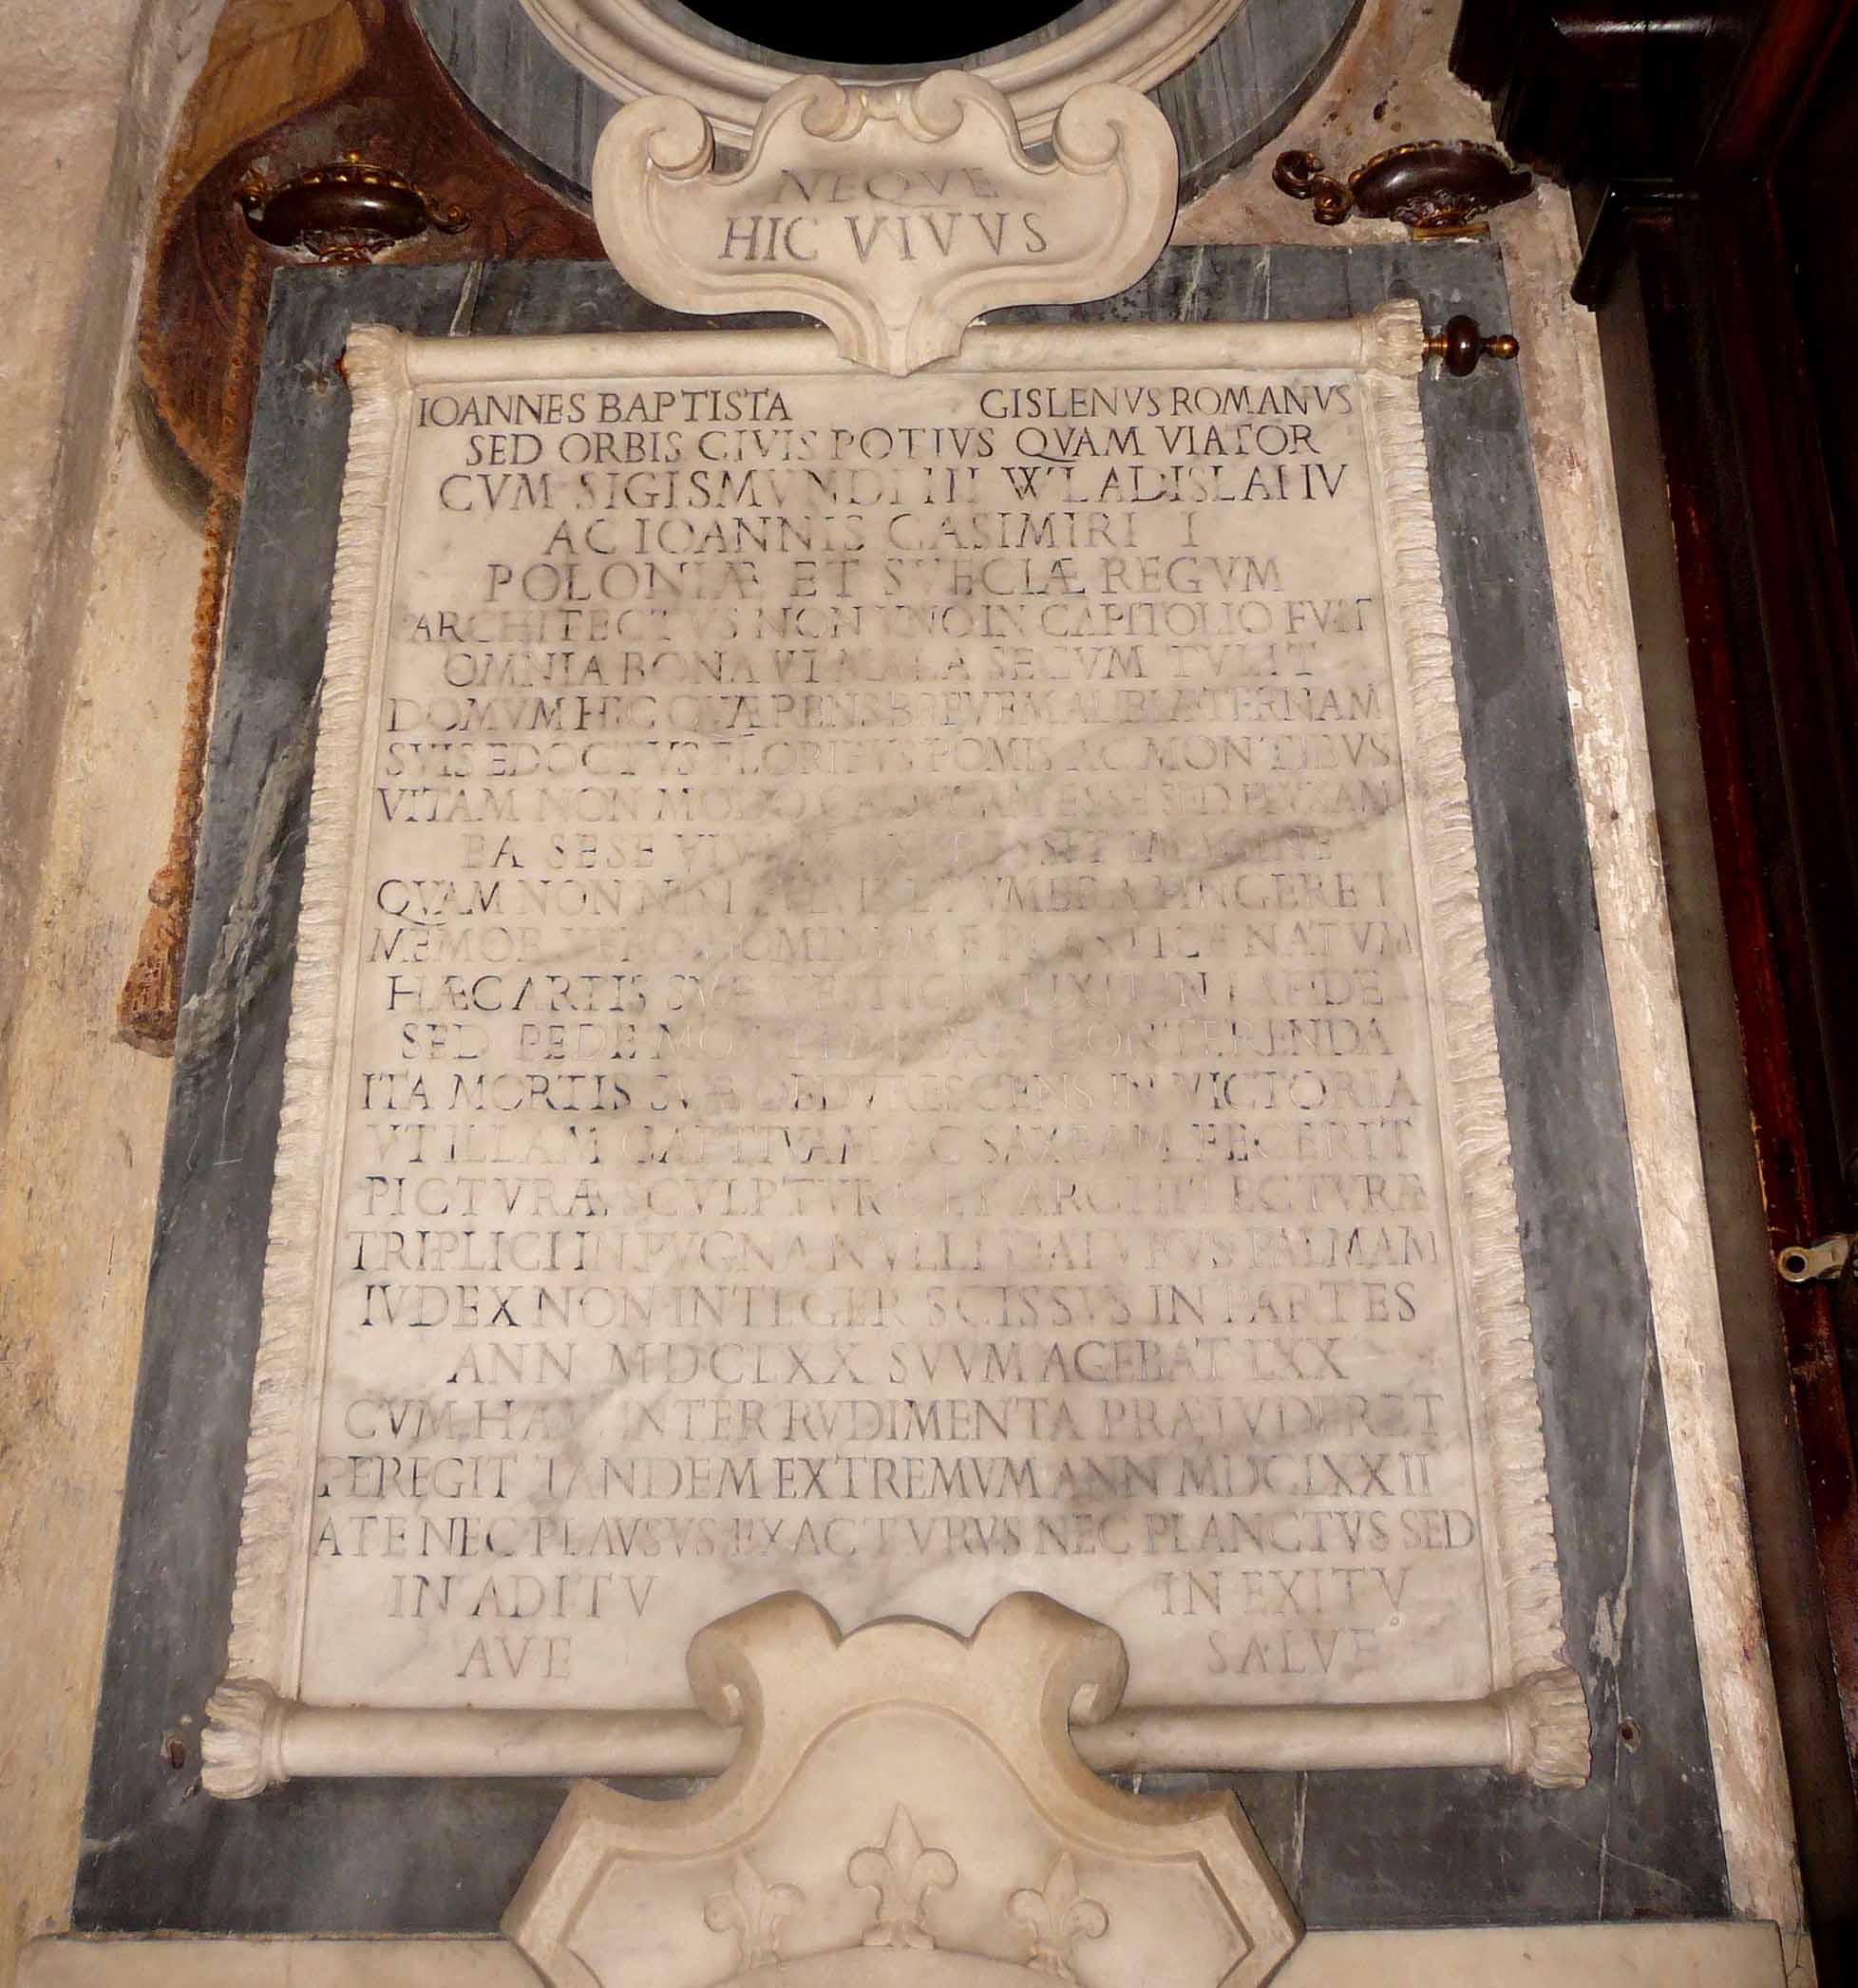 NEQVE
HIC VIVVS
IOANNES BAPTISTA GISLENVS ROMANVS
SED ORBIS CIVIS POTIVS QVAM VIATOR
CVM SIGISMVNDI III WLADISLAI IV
AC IOANNIS CASIMIRI I
POLONIÆ ET SVECIÆ REGVM
ARCHITECTVS NON VNO IN CAPITOLIO FVIT
OMNIA BONA VT MALA SECVM TVLIT
DOMVM HIC QVÆRENS BREVEM ALIBI ÆTERNAM
SVIS EDOCTVS FLORIBVS POMIS AC MONTIBVS
VITAM NON MODO CADVCAM ESSE SED FLVXAM
EA SESE IMAGINE
QVAM NON NISI PVLVIS ET VMBRA FINGERET
MEMOR VERO HOMINEM E PLASTICE NATVM
HÆC ARTIS SVÆ VESTIGIA FIXIT IN LAPIDE
SED PEDE MOX CONTERENDA
ITA MORTIS SVÆ OBDVRESCENS IN VICTORIA
VT ILLAM CAPTIVAM AC SAXEAM FECERIT
PICTVRÆ SCVLPTVRÆ ET ARCHITECTVRÆ
TRIPLICI IN PVGNA NVLLI DATVRVS PALMAM
IVDEX NON INTEGER SCISSVS IN PARTES
ANN MDCLXX SVVM AGEBAT LXX
CVM HÆC INTER RVDIMENTA PRÆLVDERET
PEREGIT TANDEM EXTREMVM ANN MDCLXXII
A TE NEC PLAVSVS EXACTVRVS NEC PLANCTVS SED
IN ADITV IN EXITV
AVE SALVE